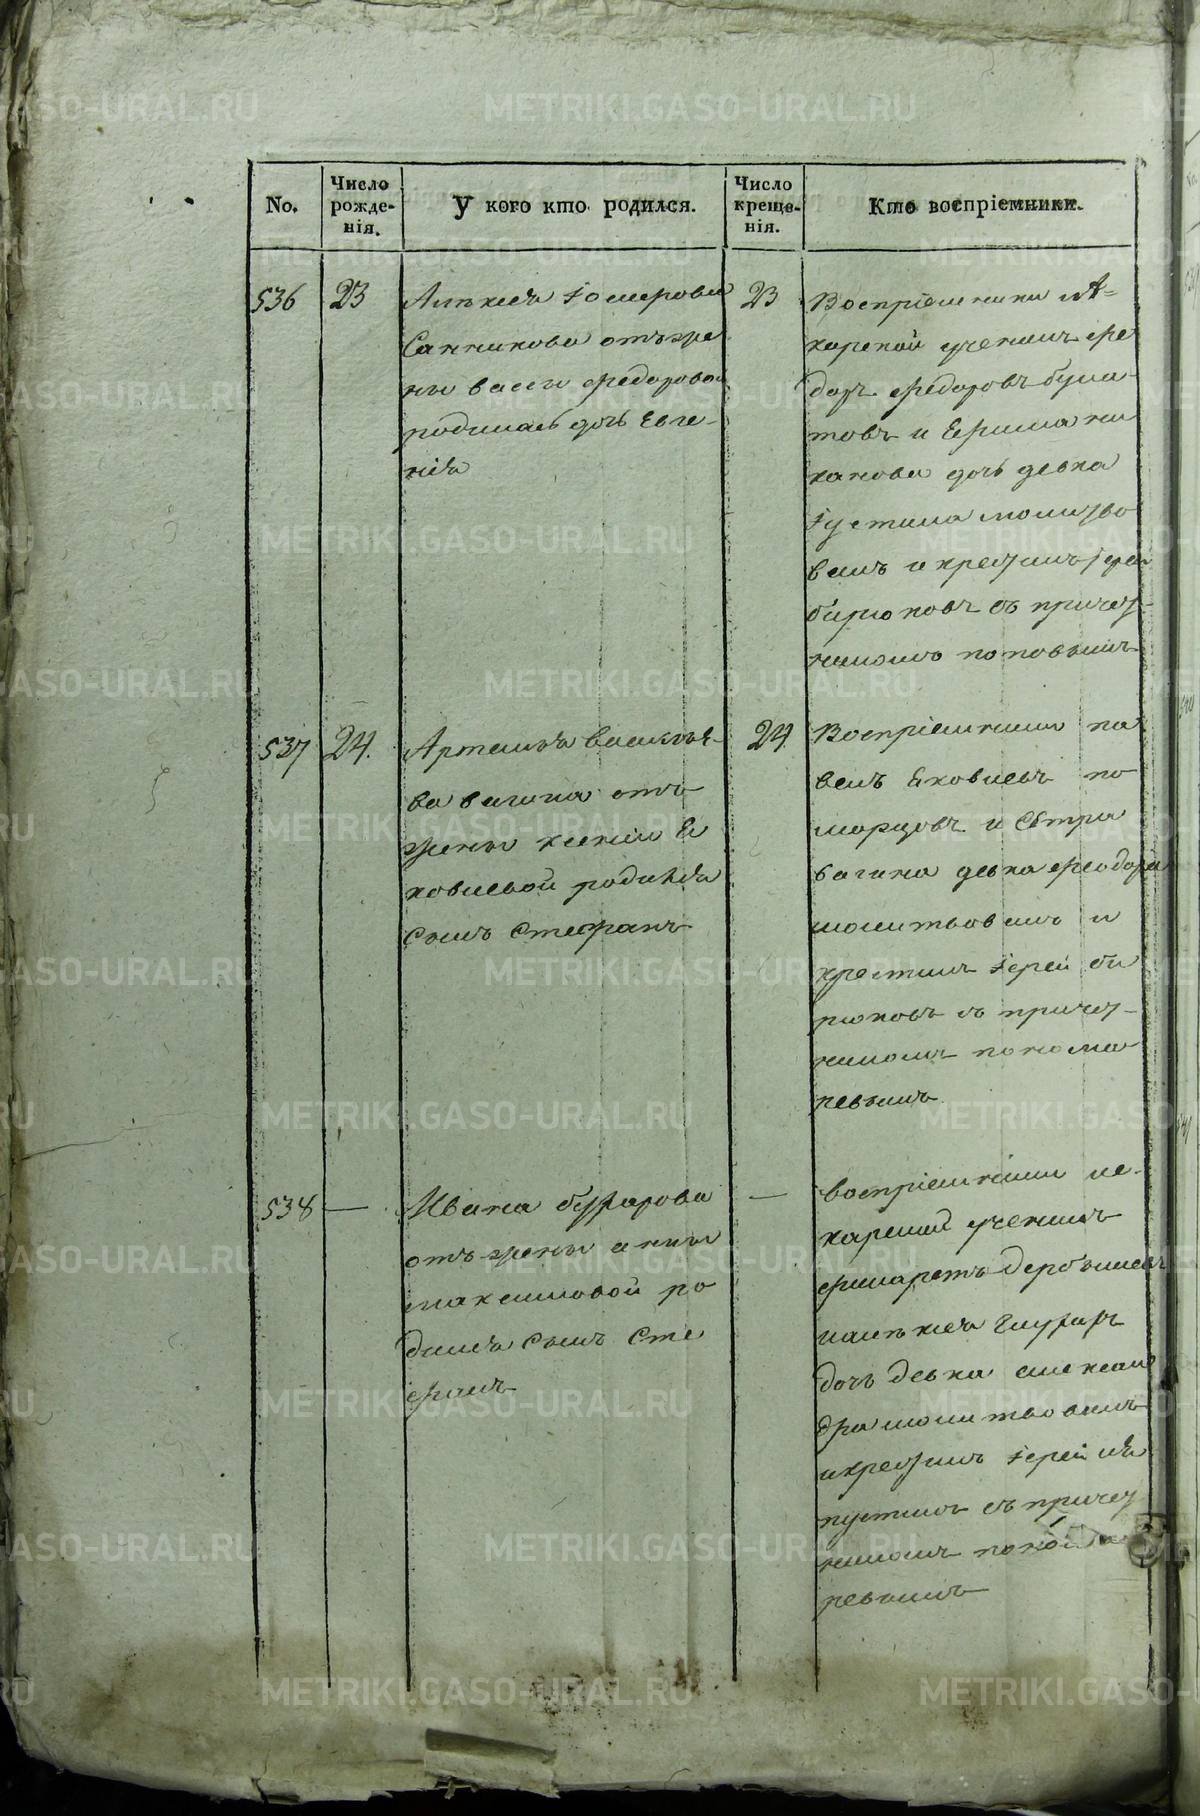 No.
Число рожде-нія.
У кого кто родился.
Число креще-нія.
Кто воспріемники.
536
23
Алексѣя
Санникова отъ же
ны васси федоровой
родилась дочь Евге-
нія
23
Воспріемники
карской ученикъ фе
доръ федоровъ була
товъ и
канова дочь девка
Iустина молитво
валъ и крестилъ
бирюковъ съ причет
никомъ поповымъ
537
24.
Артемья Василье-
ва вагина отъ
жены ксеніи Я
ковлевой родился
сынъ Стефанъ
24.
Воспріемники па
велъ Яковлевъ по
морцовъ и
вагина девка феодора
молитвовалъ и
крестилъ Iерей би
рюковъ съ причет-
никомъ понома
ревымъ
538
—
Ивана
отъ жены анны
максимовой ро
дился сынъ Сте
фанъ
—
воспріемники ле-
карский ученикъ
филаретъ
дочь девка алексан
дра молитвовалъ
и крестилъ Iерей
пустинъ съ причет
никомъ понома
ревымъ
METRIKI.GASO-URAL.RU